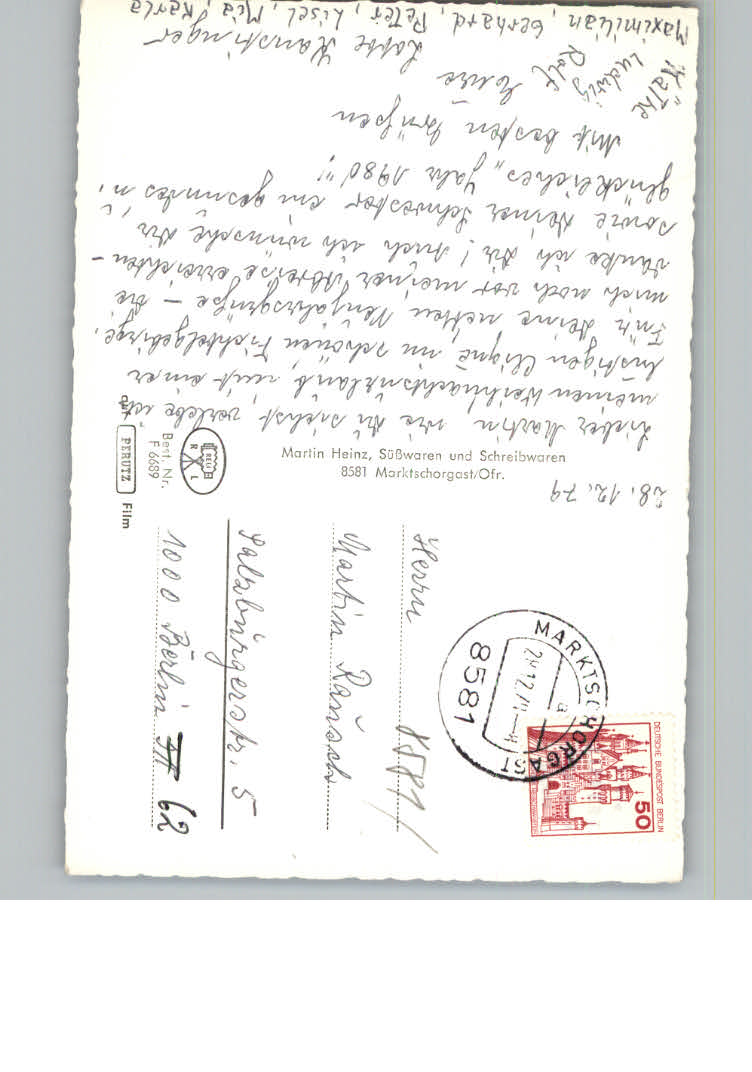 28. 12. 79
Lieber Martin wie Du siehst verlebe ich
meinen Weihnachtsurlaub mit einer
lustigen Clique im schönen Fichtelgebirge.
Für Deine netten Neujahrsgrüße – die
mich noch vor meiner Abreise erreichten –
danke ich Dir! Auch ich wünsche Dir
sowie Deiner Schwester ein gesundes u.
glückliches „Jahr 1980"!
Mit besten Grüßen
Eure
Lotte
Käthe
Ludwig
Rolf
Maximilian, Gerhard, Peter, Lisel, Mia, Karla
Martin Heinz, Süßwaren und Schreibwaren
8581 Marktschorgast/Ofr.
REGE
R L
Best. Nr.
F 6689
auf
PERUTZ
Film
DEUTSCHE BUNDESPOST BERLIN
50
MARKTSCHORGAST
a
8581
Herrn
8581/
Martin Rausch
Salzburgerstr. 5
1000 Berlin 62